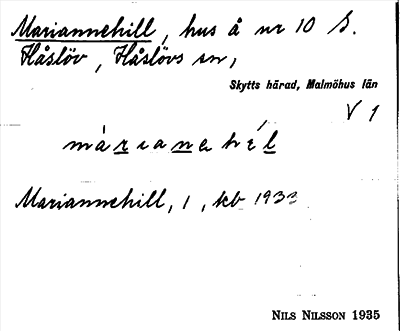 Mariannehill, hus å nr 10 S.
Håslöv, Håslövs sn,
Skytts härad, Malmöhus län
V 1
màrianehíl
Mariannehill, 1, kb 1933
NILS NILSSON 1935